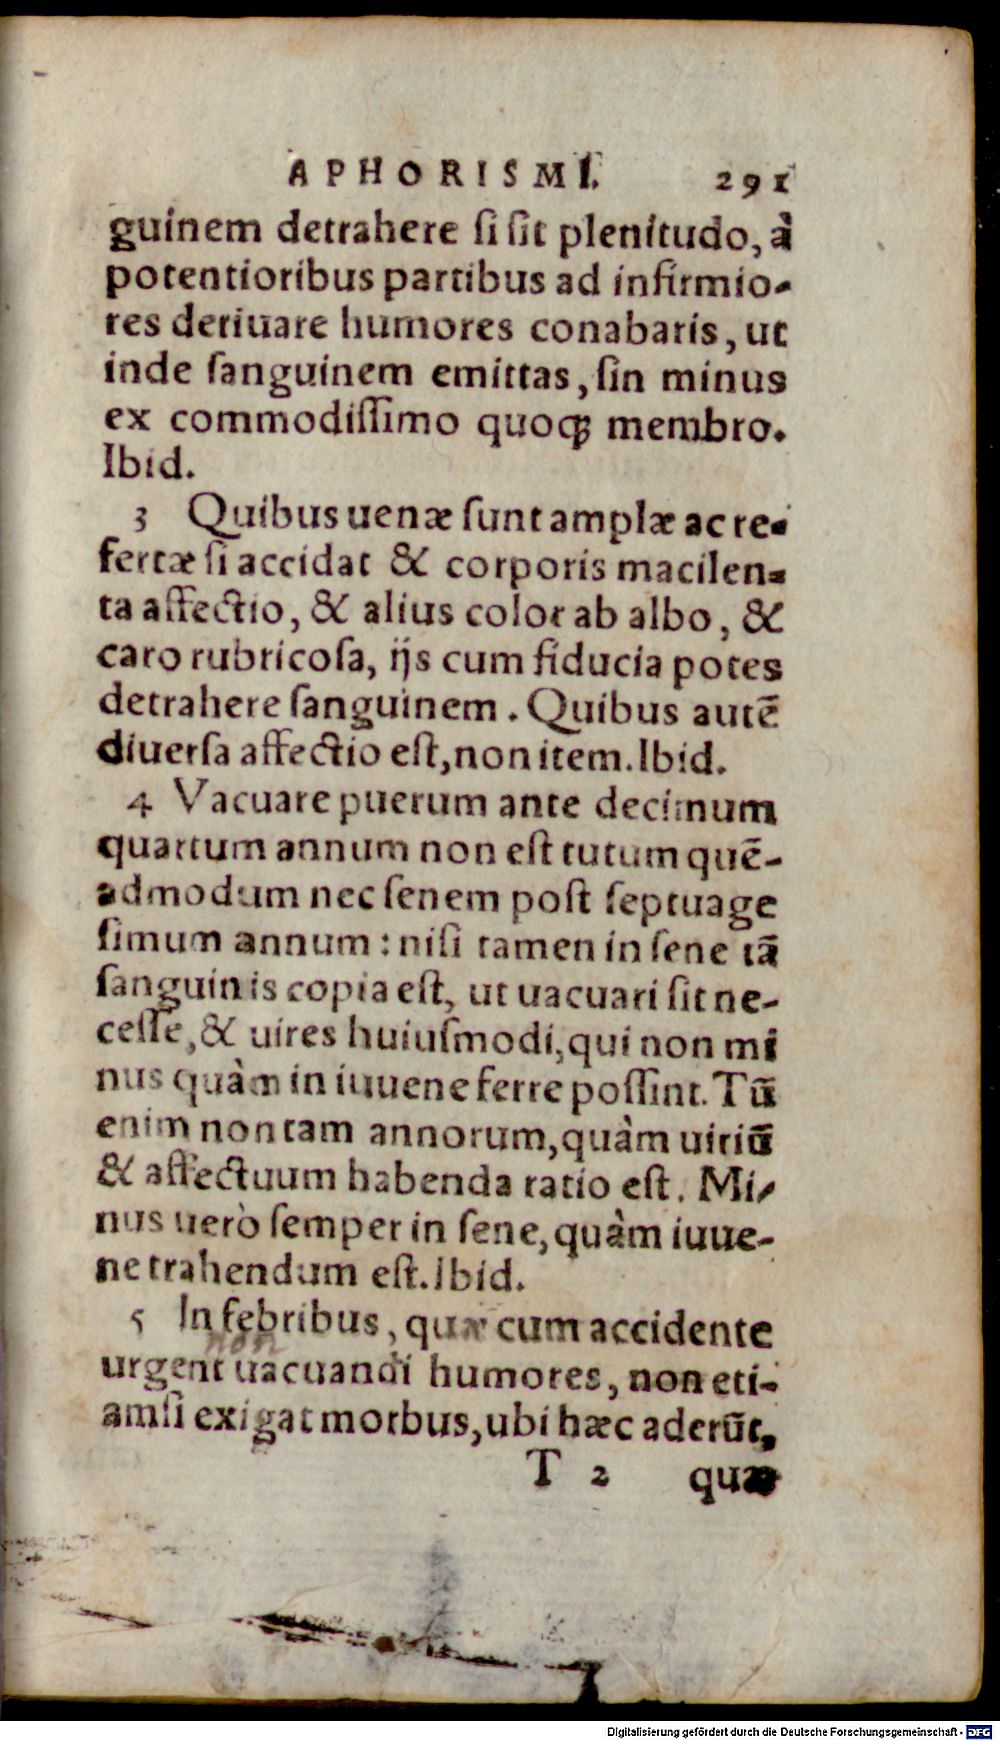 APHORISMI. 291
guinem detrahere ſi ſit plenitudo, à
potentioribus partibus ad infirmio-
res deriuare humores conabaris, ut
inde ſanguinem emittas, ſin minus
ex commodiſſimo quoqꝫ membro.
Ibid.
3 Quibus uenæ ſunt amplæ ac re-
fertæ ſi accidat & corporis macilen-
ta affectio, & alius color ab albo, &
caro rubricoſa, ijs cum fiducia potes
detrahere ſanguinem. Quibus autē
diuerſa affectio eſt, non item. Ibid.
4 Vacuare puerum ante decimum
quartum annum non eſt tutum quē-
admodum nec ſenem poſt ſeptuage
ſimum annum: niſi tamen in ſene tā
ſanguinis copia eſt, ut uacuari ſit ne-
ceſſe, & uires huiuſmodi, qui non mi
nus quàm in iuuene ferre poſſint. Tū
enim non tam annorum, quàm uiriū
& affectuum habenda ratio eſt. Mi-
nus uerò ſemper in ſene, quàm iuue-
ne trahendum eſt. Ibid.
5 In febribus, quæ cum accidente
non
urgent uacuandi humores, non eti-
amſi exigat morbus, ubi hæc aderūt,
T 2 quæ
Digitalisierung gefördert durch die Deutsche Forschungsgemeinschaft - DFG